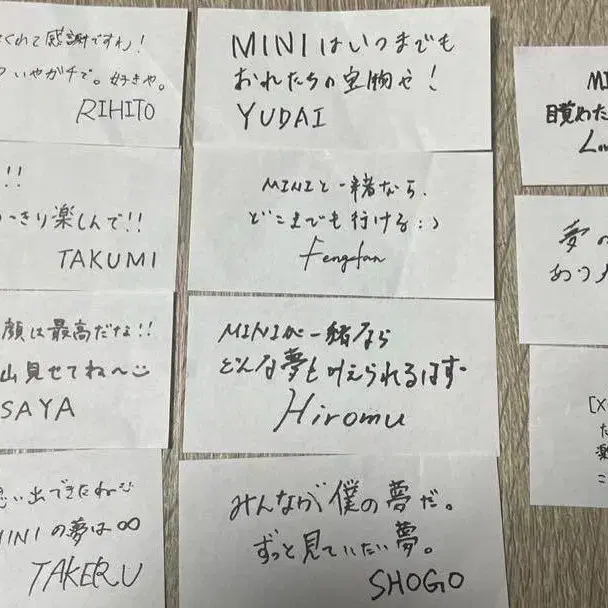 くれて感謝ですわ!
いやガチで。好きや。
RIHITO
!!
っきり楽しんで!!
TAKUMI
顔は最高だな!!
山見せてね〜
SAYA
思い出できたね
MINIの夢は∞
TAKERU
MINIはいつまでも
おれたちの宝物や!
YUDAI
MINIと一緒なら、
どこまでも行ける:)
Fengfan
MINIが一緒なら
どんな夢も叶えられるはず
Hiromu
みんなが僕の夢だ。
ずっと見ていたい夢。
SHOGO
MI
目覚めた
夢の
あり
[X
た
楽
こ